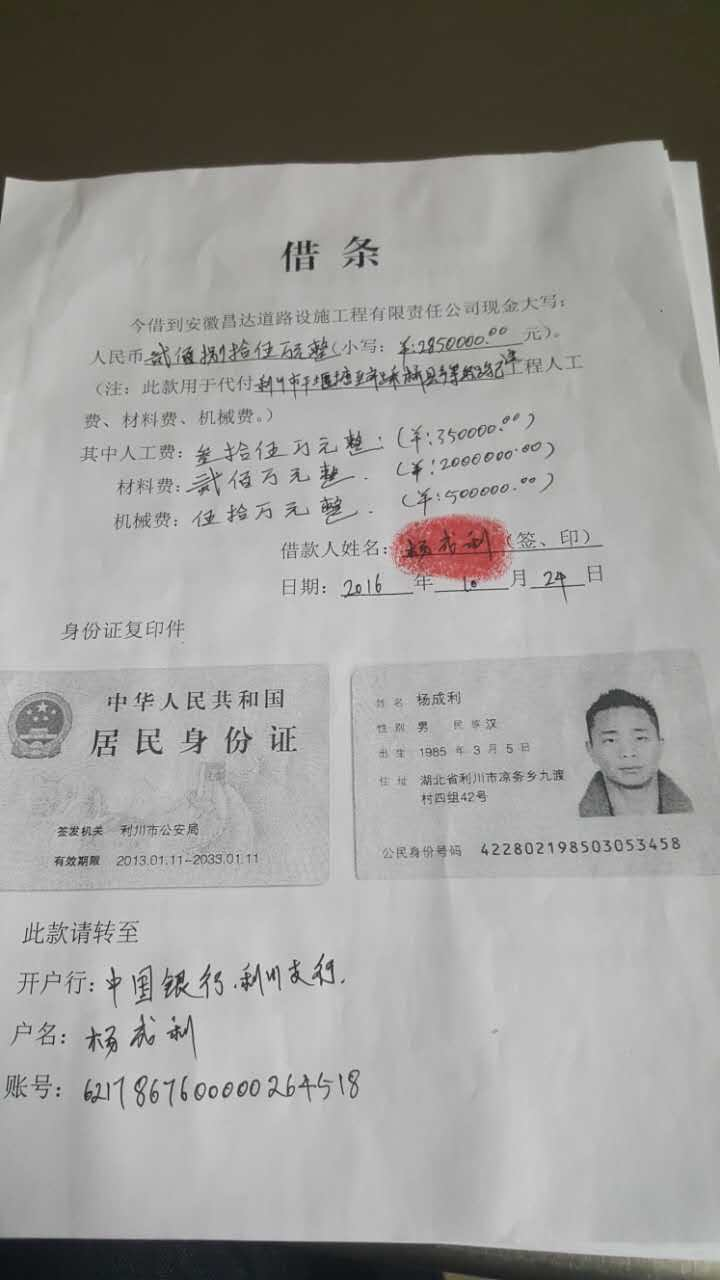 借条
今借到安徽昌达道路设施工程有限责任公司现金大写：
人民币贰佰捌拾伍万元整（小写：¥:2850000.00元）。
（注：此款用于代付利川市工程人工
费、材料费、机械费。）
其中人工费：叁拾伍万元整．（¥:350000.00）
材料费：贰佰万元整．（¥:2000000.00）
机械费：伍拾万元整．（¥:500000.00）
借款人姓名：杨成利（签、印）
日期：2016年10月24日
身份证复印件
中华人民共和国
居民身份证
签发机关 利川市公安局
有效期限 2013.01.11-2033.01.11
姓名 杨成利
性别 男 民族 汉
出生 1985年3月5日
住址 湖北省利川市凉务乡九渡
村四组42号
公民身份号码 422802198503053458
此款请转至
开户行：中国银行．利川支行．
户名：杨成利
账号：6217867600000264518